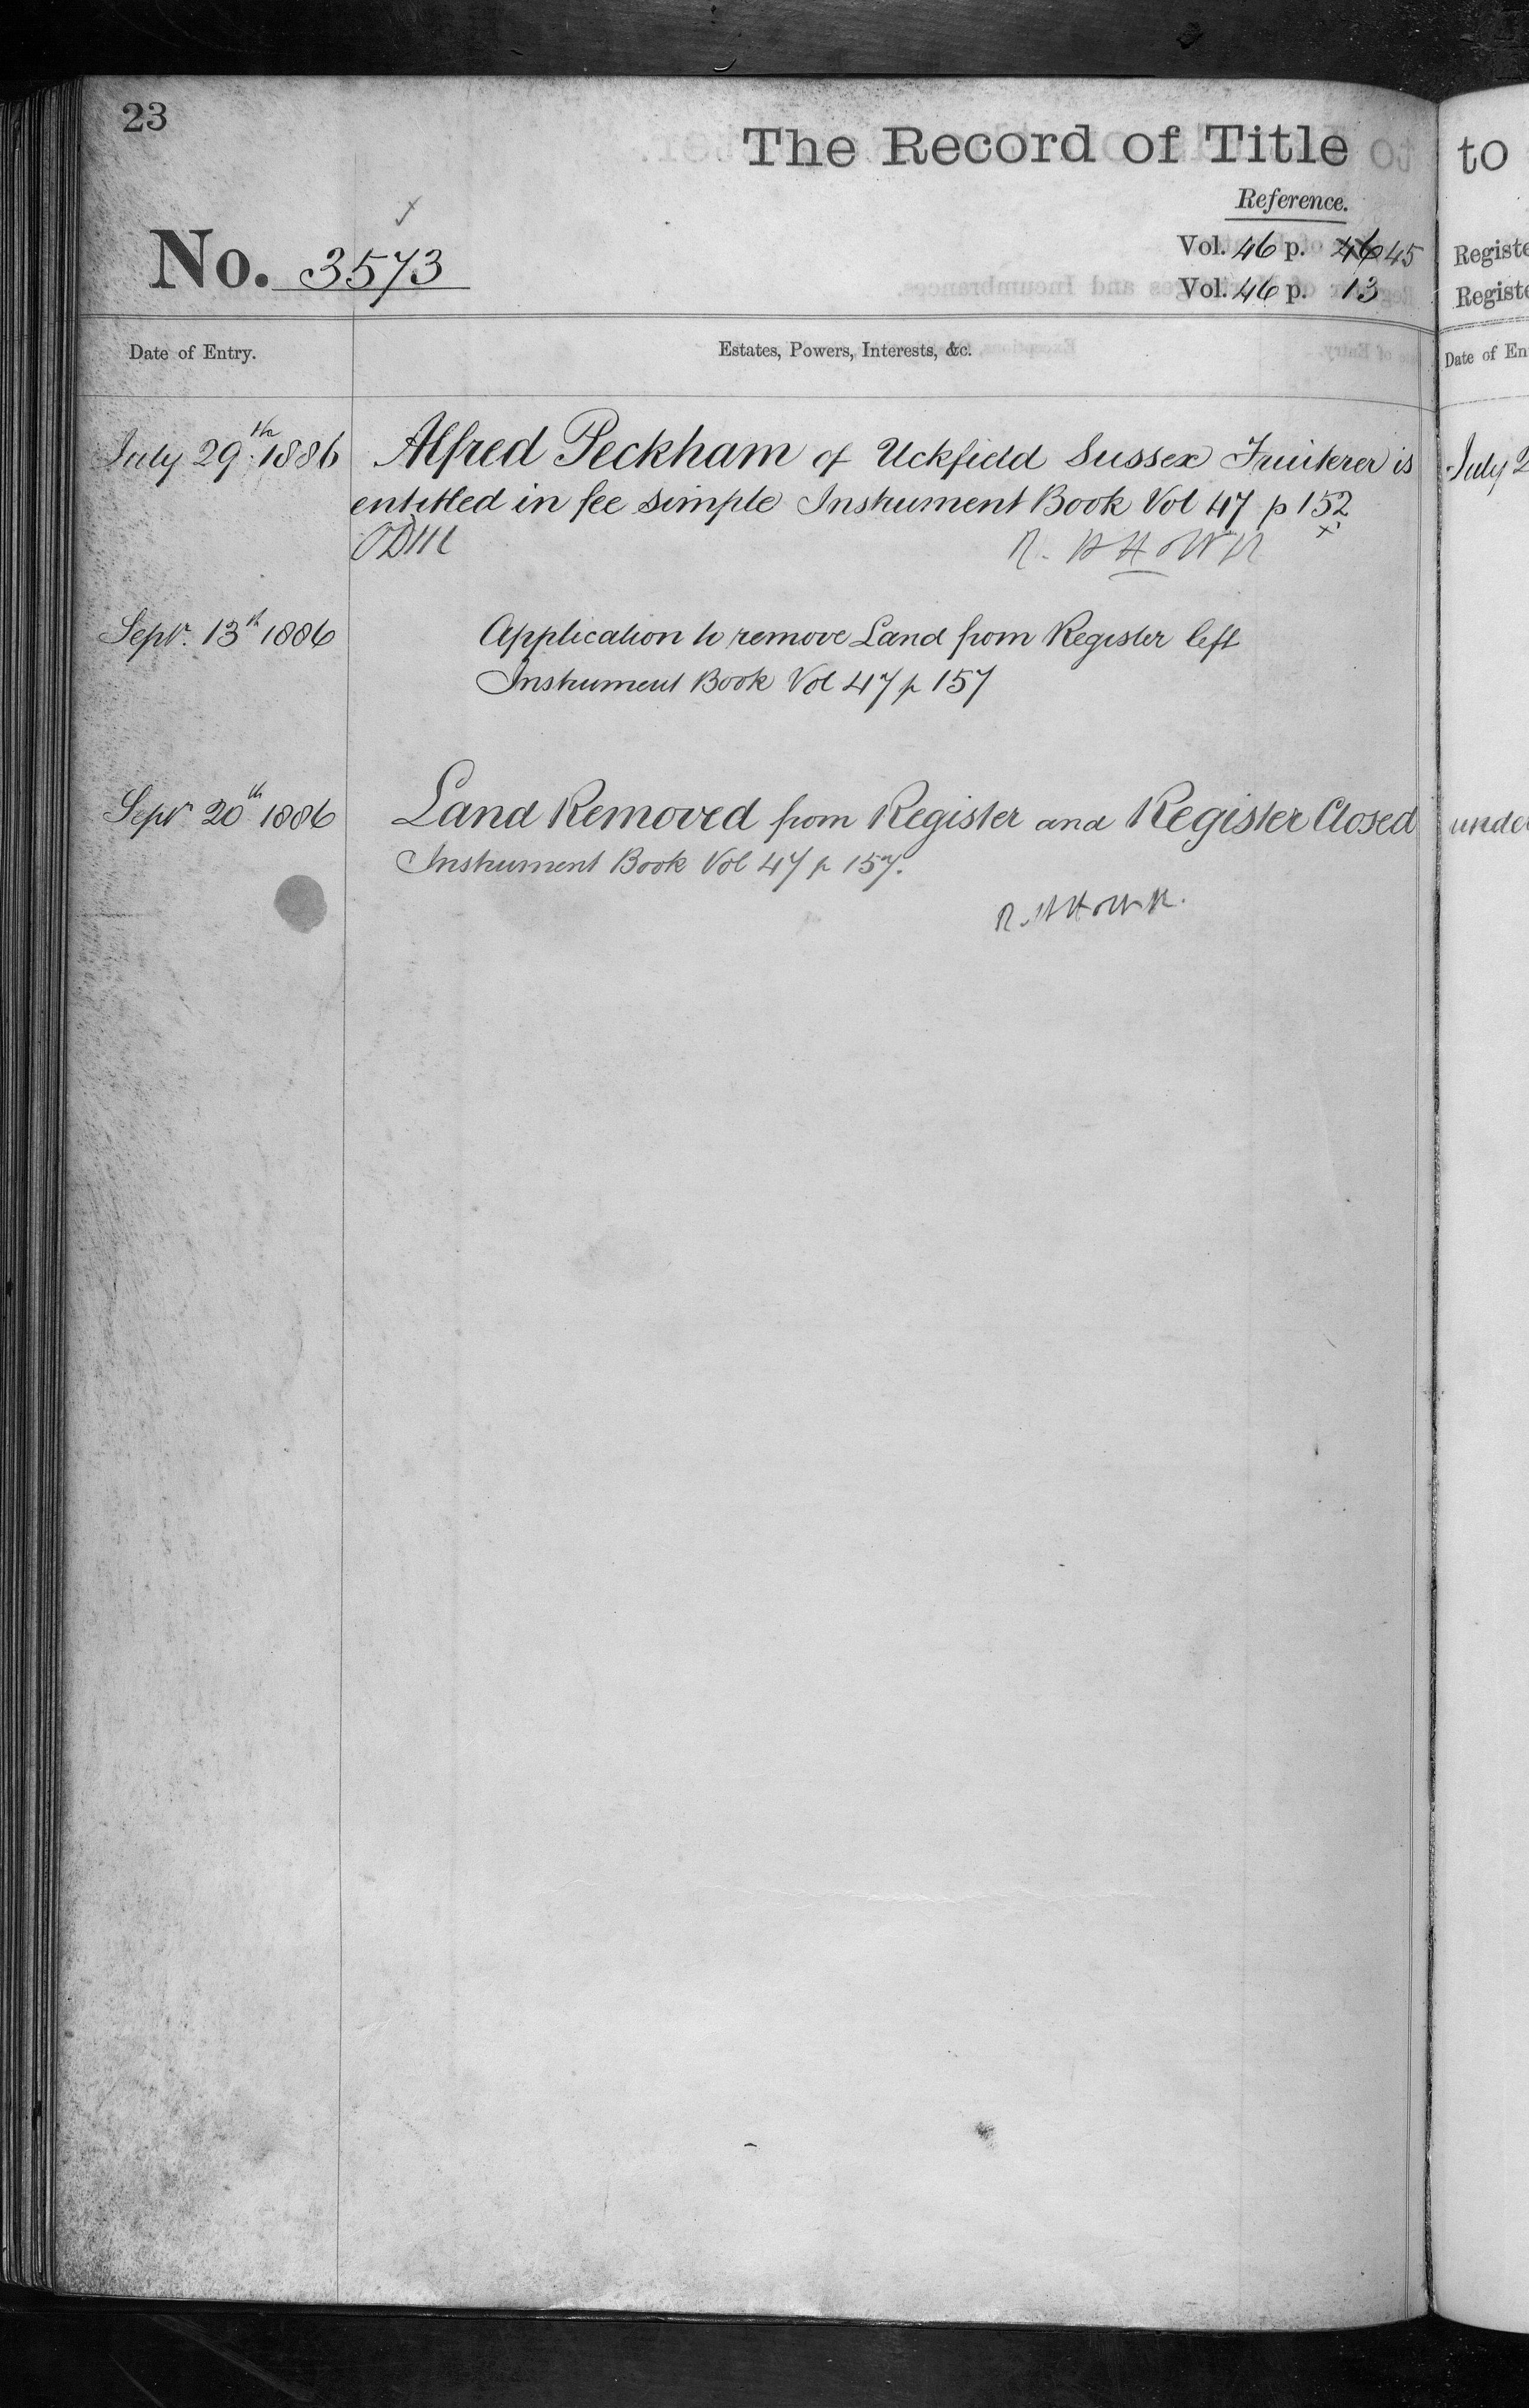 23
The Record of Title
Reference.
No. 3573
Vol. 46 p. 46 45
Vol. 46 p. 13
Date of Entry.
Estates, Powers, Interests, &c.
July 29th 1886 Alfred Peckham of Uckfield Sussex Fruiterer is
entitled in fee simple Instrument Book Vol 47 p 152
Sepr. 13th 1886 Application to remove Land from Register left
Instrument Book Vol 47 p 157
Sepr 20th 1886 Land Removed from Register and Register Closed
Instrument Book Vol 47 p 157.
to
Registe
Registe
Date of En
July 2
unde